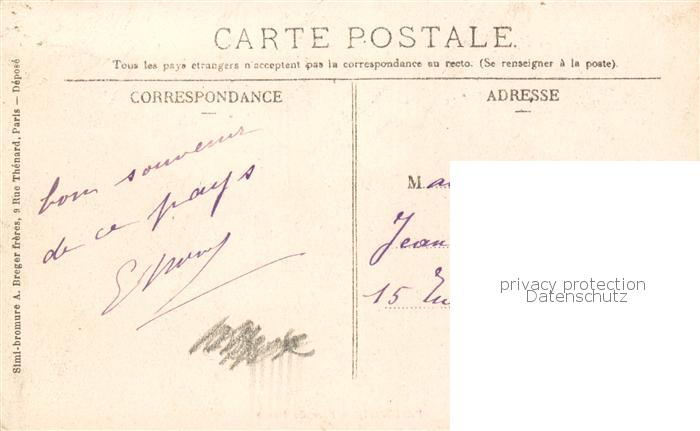 CARTE POSTALE.
Tous les pays etrangers n'acceptent pas la correspondance au recto. (Se renseigner à la poste).
CORRESPONDANCE
bon souvenir
de ce pays
ADRESSE
M.
Jean
15
privacy protection
Datenschutz
Simi-bromure A. Breger frères, 9 Rue Thénard, Paris — Déposé